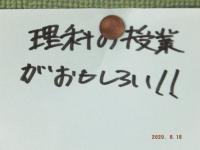 理科の授業
がおもしろい!!
2020. 6.16